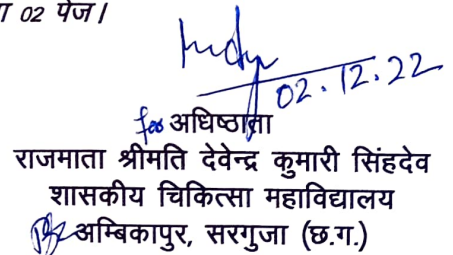 02 पेज।
02.12.22
for अधिष्ठाता
राजमाता श्रीमति देवेन्द्र कुमारी सिंहदेव
शासकीय चिकित्सा महाविद्यालय
अम्बिकापुर, सरगुजा (छ.ग.)